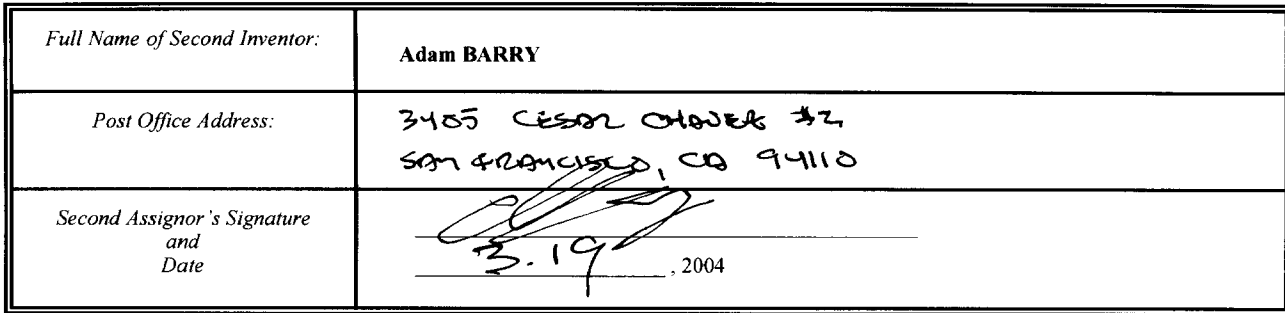 Full Name of Second Inventor:
Adam BARRY
Post Office Address:
3405 CESAR CHAVEZ #2
SAN FRANCISCO, CA 94110
Second Assignor's Signature
and
Date
3.19, 2004